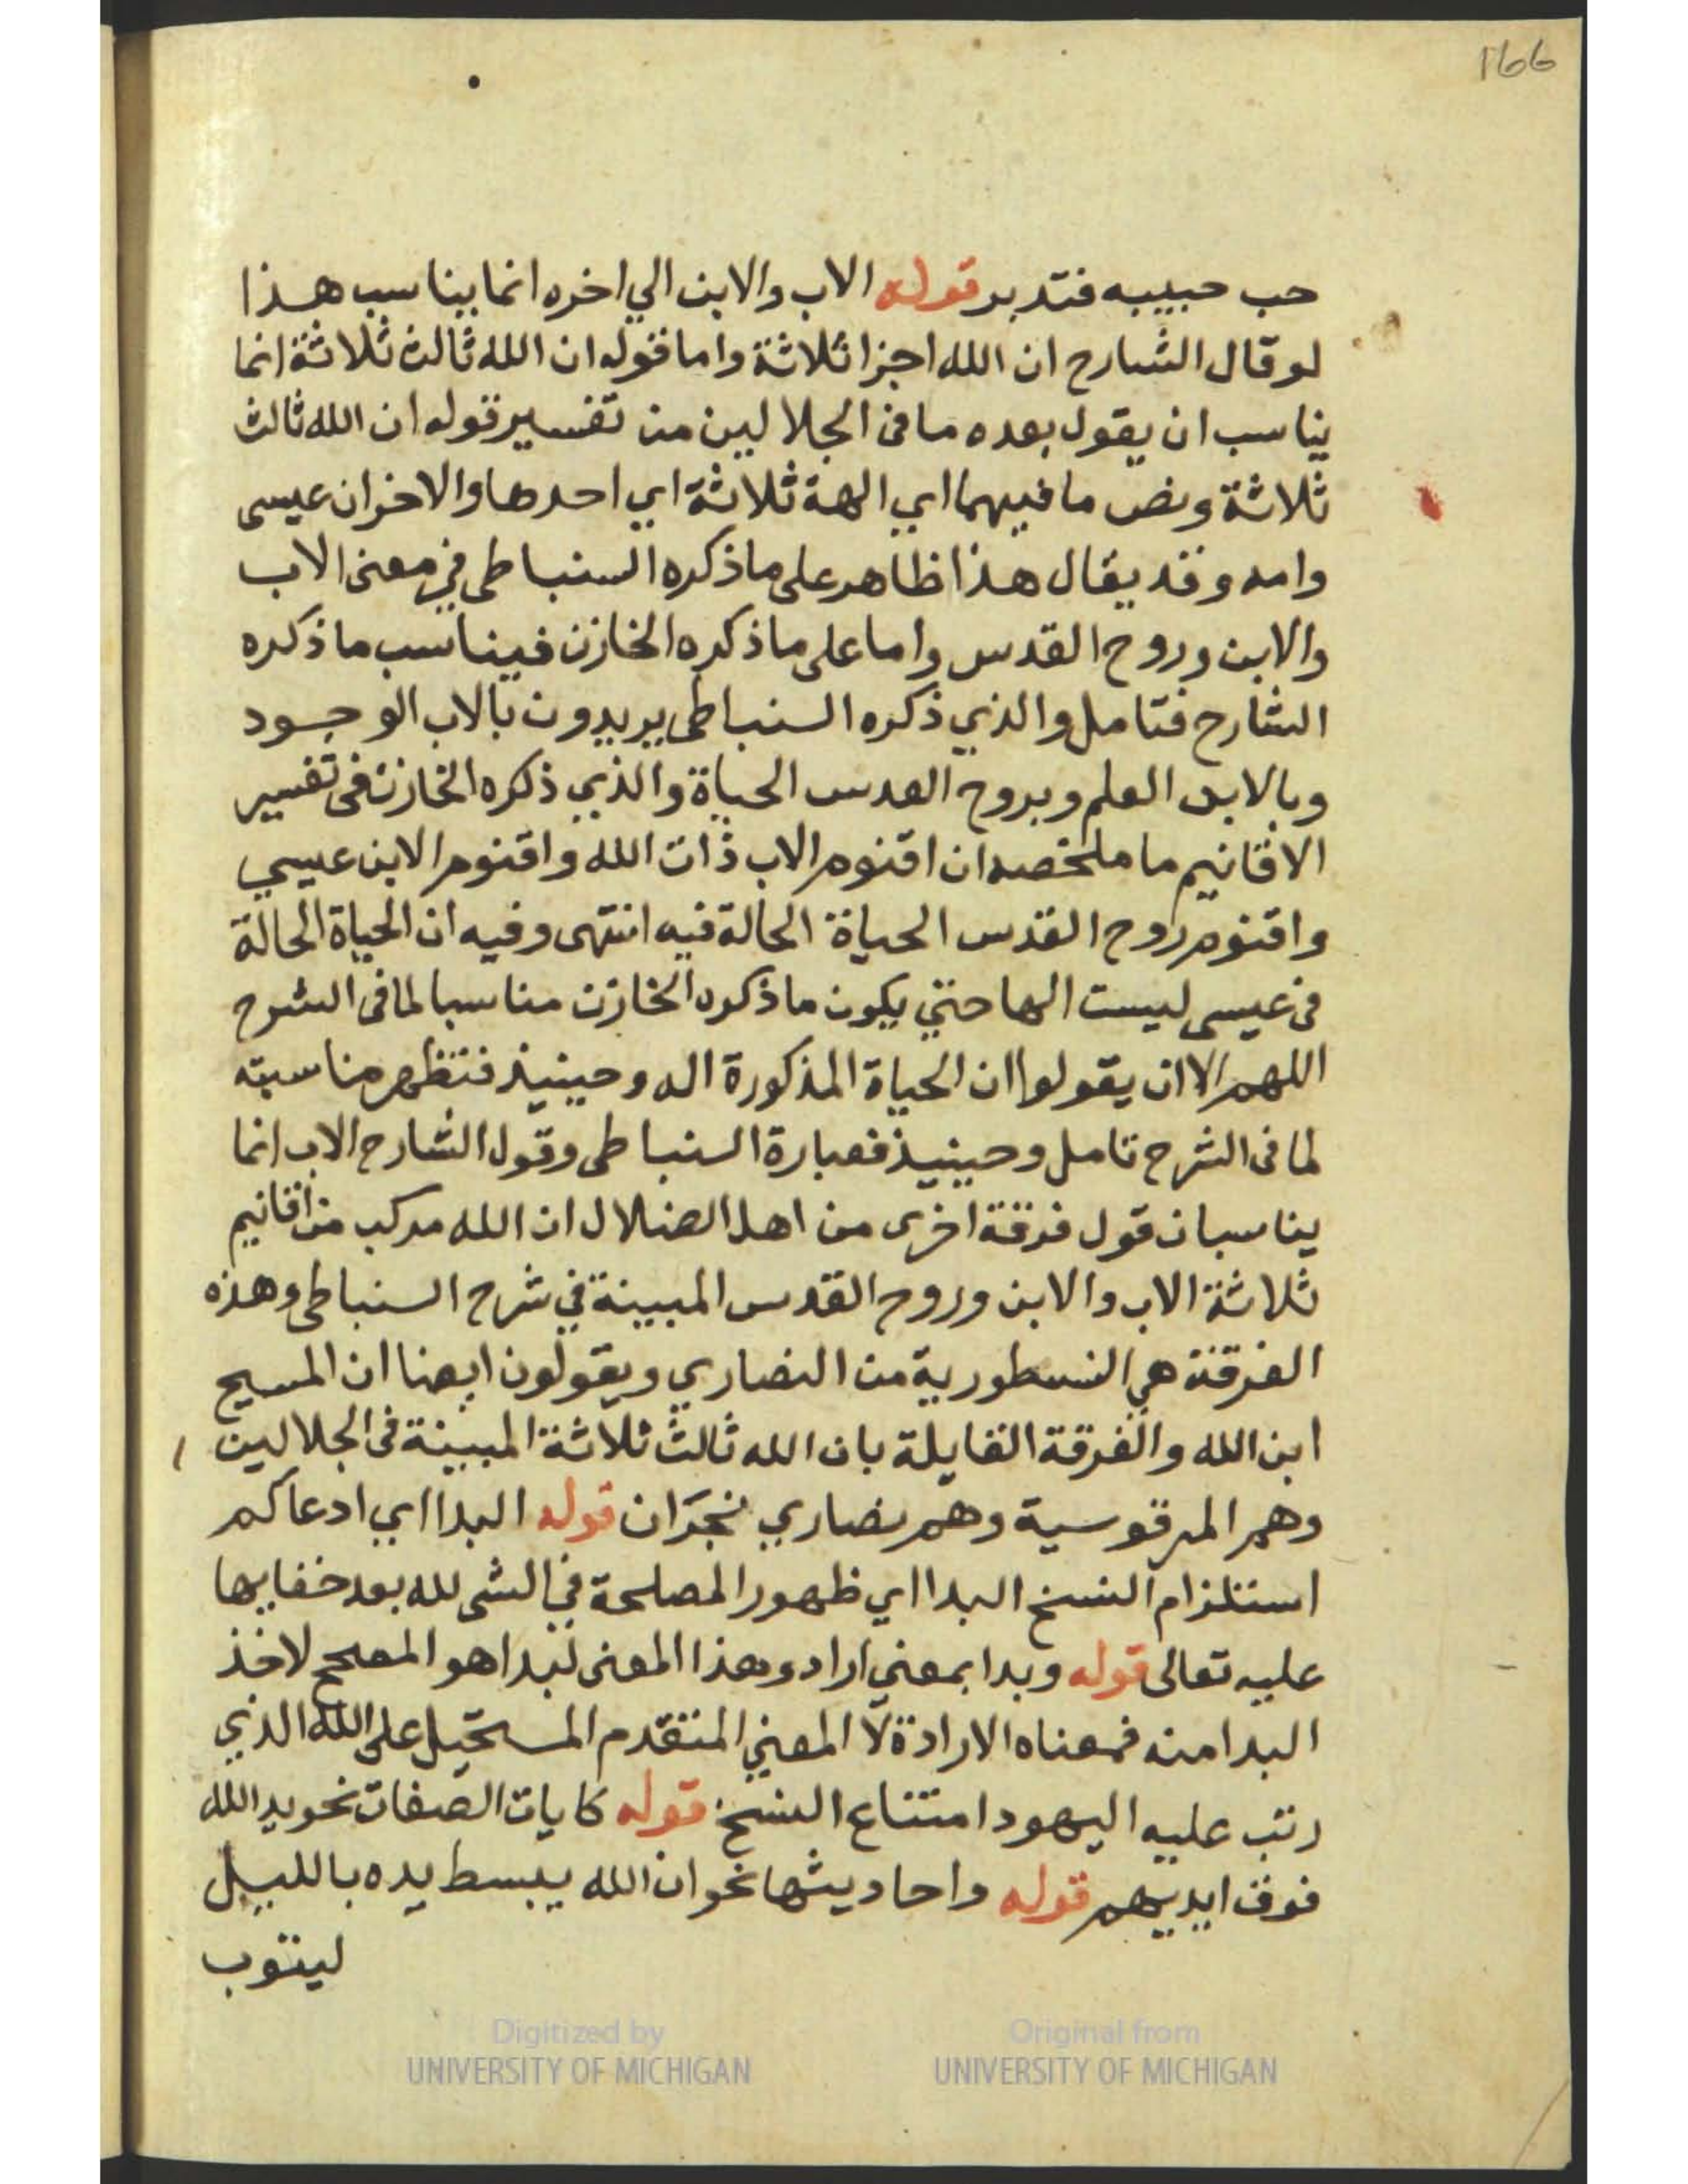 166
حب حبيبه فتدبر قوله الاب والابن الي اخره انما يناسب هذا
لو قال الشارح ان الله اجزا ثلاثة واما قوله ان الله ثالث ثلاثة انما
يناسب ان يقول بعده ما فى الجلالين من تفسير قوله ان الله ثالث
ثلاثة ونص ما فيهما اي الهة ثلاثة اي احدها والاخران عيسى
وامه وقد يقال هذا ظاهر على ما ذكره السنباطى في معنى الاب
والابن وروح القدس واما على ما ذكره الخازن فيناسب ما ذكره
الشارح فتامل والذي ذكره السنباطى يريدون بالاب الوجود
وبالابن العلم وبروح القدس الحياة والذي ذكره الخازن فى تفسير
الاقانيم ما ملخصه ان اقنوم الاب ذات الله واقنوم الابن عيسي
واقنوم روح القدس الحياة الحالة فيه انتهى وفيه ان الحياة الحالة
فى عيسى ليست الها حتي يكون ما ذكره الخازن مناسبا لما فى الشرح
اللهم الا ان يقولوا ان الحياة المذكورة اله وحينيذ فتظهر مناسبته
لما فى الشرح تامل وحينيذ فعبارة السنباطى وقول الشارح الاب انما
يناسبان قول فرقة اخرى من اهل الضلال ان الله مركب من اقانيم
ثلاثة الاب والابن وروح القدس المبينة في شرح السنباطى وهذه
الفرقة هي النسطورية من النصاري ويقولون ايضا ان المسيح
ابن الله والفرقة القايلة بان الله ثالث ثلاثة المبينة فى الجلالين
وهم المرقوسية وهم نصاري نجران قوله البدا اي ادعاكم
استلزام النسخ البدا اي ظهور المصلحة في الشى لله بعد خفايها
عليه تعالى قوله وبدا بمعني اراد وهذا المعنى لبدا هو المصحح لاخذ
البدا منه فمعناه الارادة لا المعني المتقدم المستحيل على الله الذي
رتب عليه اليهود امتناع النسخ قوله كايات الصفات نحو يد الله
فوق ايديهم قوله واحاديثها نحو ان الله يبسط يده بالليل
ليتوب
Digitized by
UNIVERSITY OF MICHIGAN
Original from
UNIVERSITY OF MICHIGAN